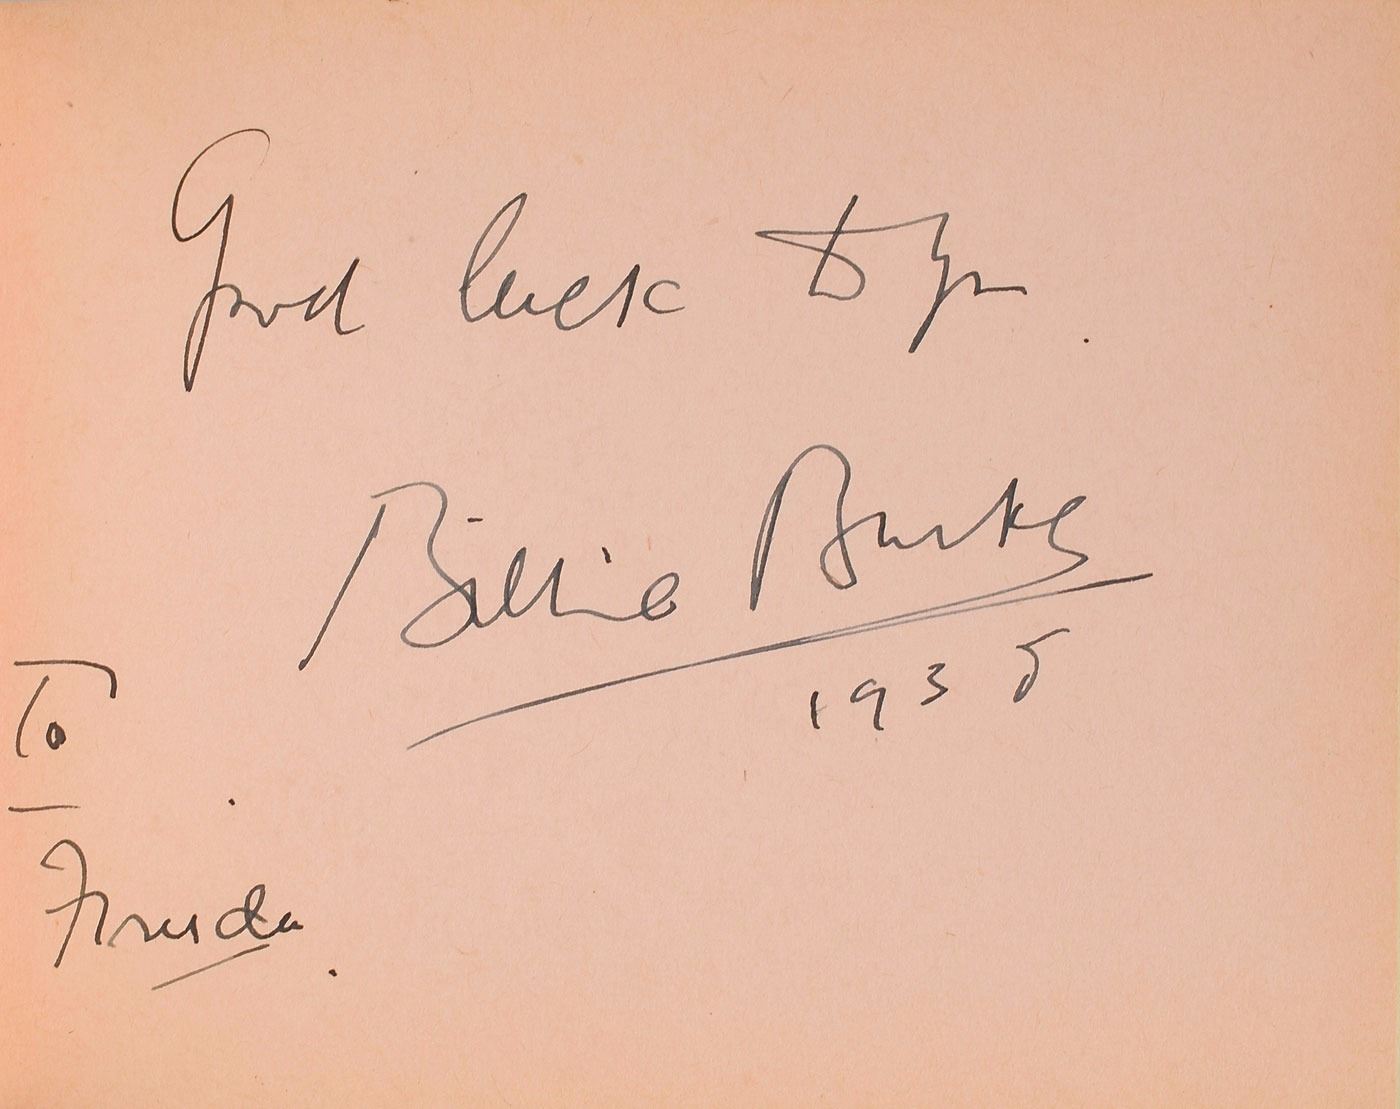 Good luck to you.
Billie Burke
1935
To
Freida.